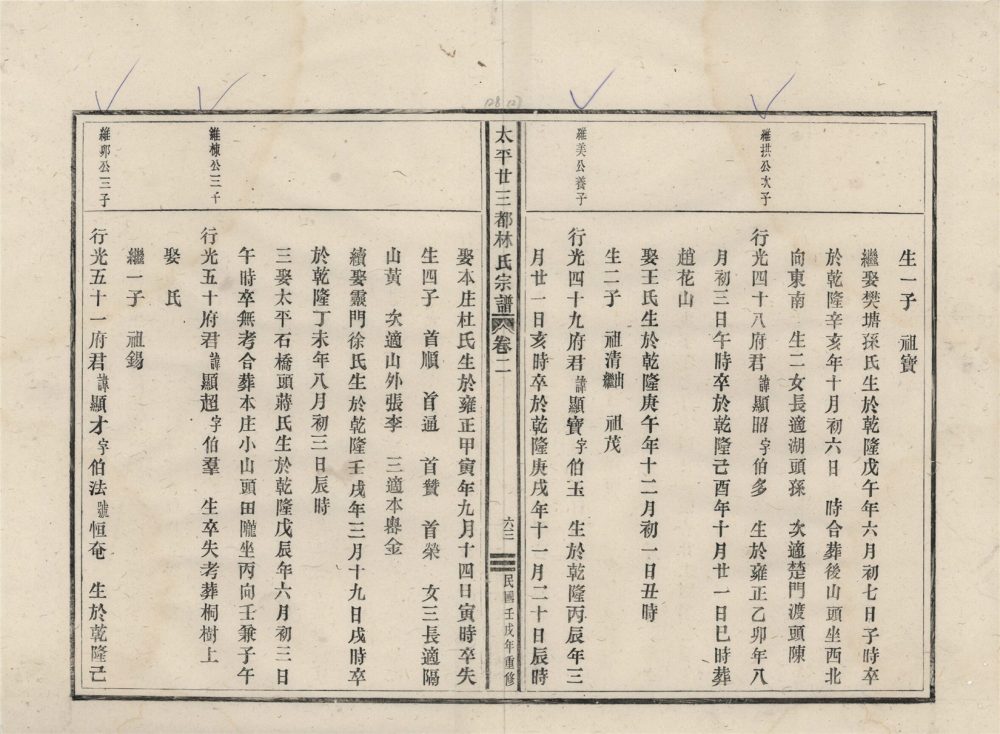 生一子　祖寶
繼娶樊塘孫氏生於乾隆戊午年六月初七日子時卒
於乾隆辛亥年十月初六日　時合葬後山頭坐西北
向東南　生二女長適湖頭孫　次適楚門渡頭陳
維拱公次子
行光四十八府君諱顯昭字伯多　生於雍正乙卯年八
月初三日午時卒於乾隆己酉年十月廿一日巳時葬
趙花山
娶王氏生於乾隆庚午年十二月初一日丑時
生二子　祖清繼　祖茂
維美公養子
行光四十九府君諱顯寶字伯玉　生於乾隆丙辰年三
月廿一日亥時卒於乾隆庚戌年十一月二十日辰時
太平廿三都林氏宗譜　卷二　六三　民國壬戌年重修
娶本庄杜氏生於雍正甲寅年九月十四日寅時卒失
生四子　首順　首通　首贊　首榮　女三長適隔
山黃　次適山外張李　三適本嶴金
續娶靈門徐氏生於乾隆壬戌年三月十九日戌時卒
於乾隆丁未年八月初三日辰時
三娶太平石橋頭蔣氏生於乾隆戊辰年六月初三日
午時卒無考合葬本庄小山頭田隴坐丙向壬兼子午
維棟公三子
行光五十府君諱顯超字伯羣　生卒失考葬桐樹上
娶　氏
繼一子　祖錫
維郭公三子
行光五十一府君諱顯才字伯法號恒奄　生於乾隆己